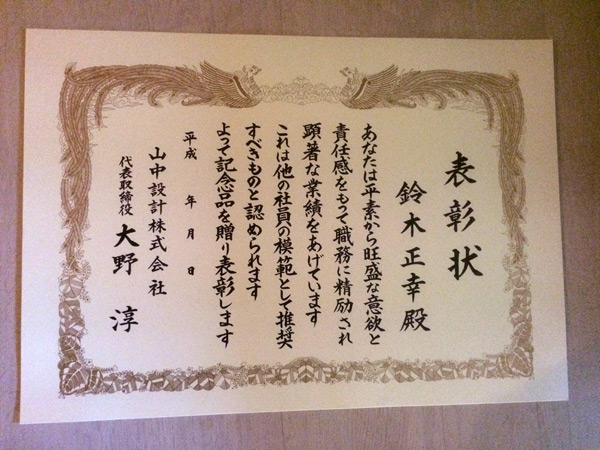 表彰状
鈴木正幸殿
あなたは平素から旺盛な意欲と
責任感をもって職務に精励され
顕著な業績をあげています
これは他の社員の模範として推奨
すべきものと認められます
よって記念品を贈り表彰します
平成　年　月　日
山中設計株式会社
代表取締役　大野　淳